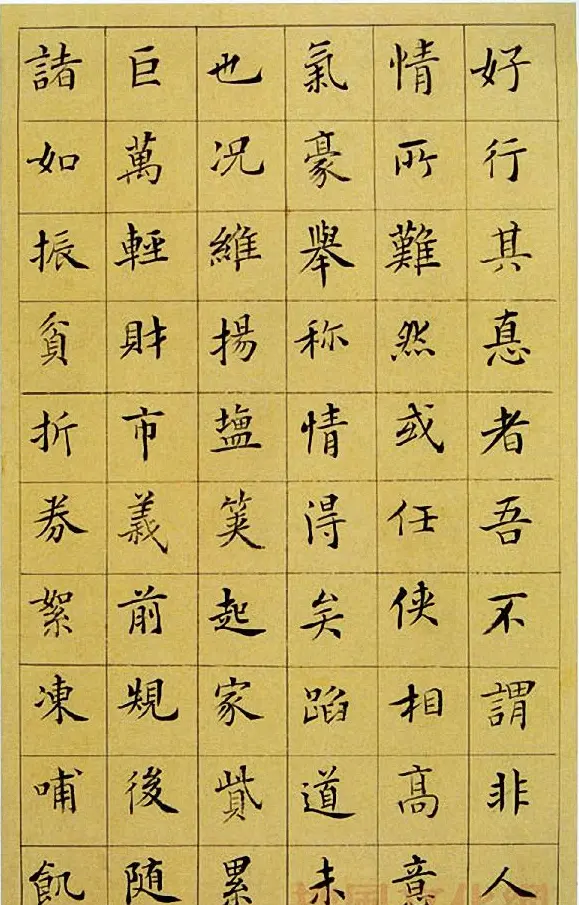 好行其悳者吾不謂非人
情所難然或任侠相高意
氣豪舉称情得矣蹈道未
也况維揚塩筴起家貲累
巨萬輕財市義前規後随
諸如振貧折券絮凍哺飢